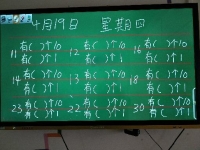 4月19日 星期日
11 有( )个10 12 有( )个10 16 有( )个10
有( )个1 有( )个1 有( )个1
14 有( )个10 13 有( )个10 18 有( )个10
有( )个1 有( )个1 有( )个1
23 有( )个10 22 有( )个10 30 有( )个10
有( )个1 有( )个1 有( )个1